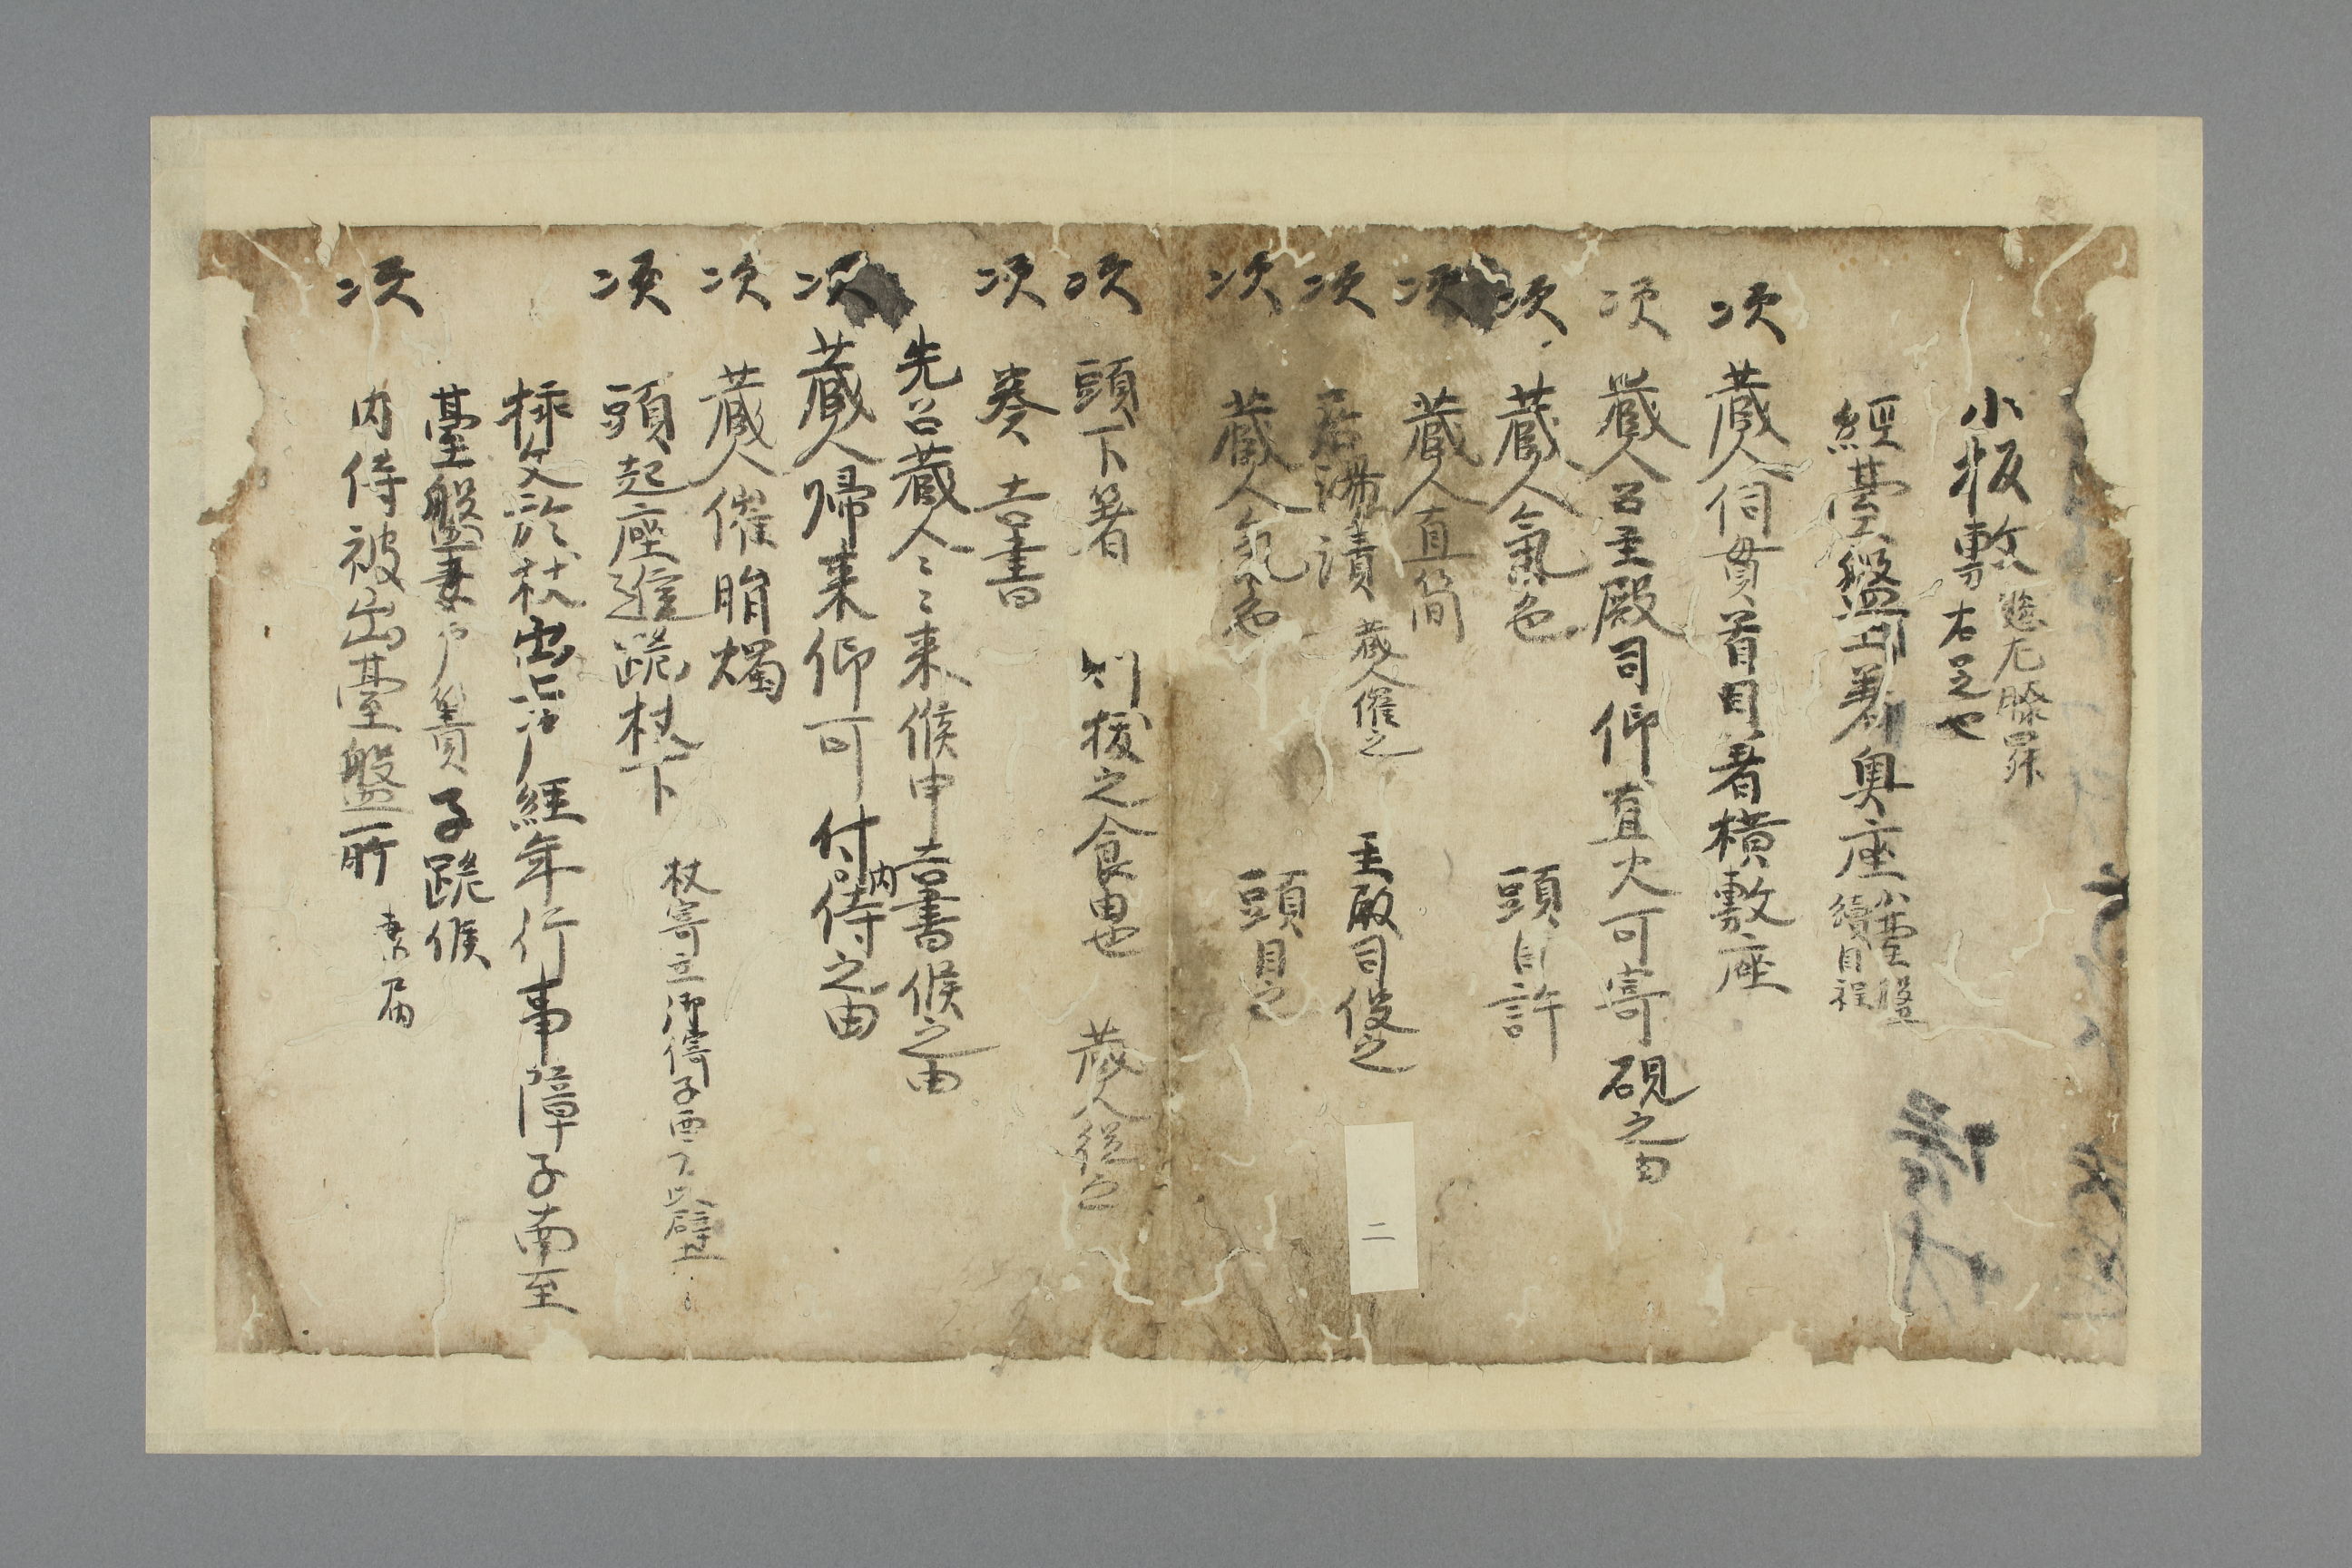 小板敷 進左膝昇
右足也
經臺盤上着奥座 小臺盤
續目程
次 蔵人伺貫首目着横敷座
次 蔵人召主殿司仰置火可寄硯之由
次 蔵人氣色 頭目許
次 蔵人直簡
次 居湯漬 蔵人催之 主殿司役之
次 蔵人氣色 頭目之
次 頭下箸 則拔之食由也 蔵人従之
次 奏吉書
先召蔵人々々来候申吉書候之由
次 蔵人歸来仰可付内侍之由
次 蔵人催脂燭
次 頭起座進跪杖下 杖寄立御倚子西下壁
挿文於杖出上戸經年行事障子南至
臺盤妻戸簀子跪候
次 内侍被出臺盤所